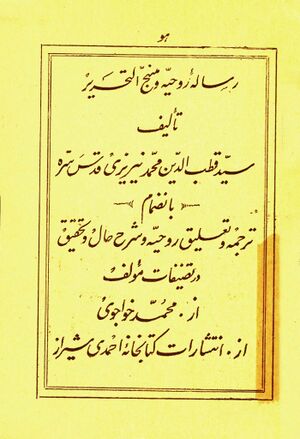 هو
رسالهٔ روحیّه و منهج التحریر
تألیف
سیّد قطب الدّین محمّد نیریزی قدّس سرّه
بانضمام
ترجمه و تعلیق روحیّه و شرح حال و تحقیق
در تصنیفات مؤلف
از: محمّد خواجوی
از: انتشارات کتابخانهٔ احمدی شیراز